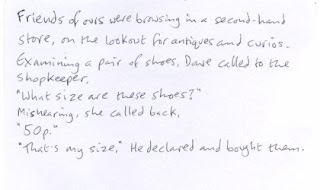 Friends of ours were browsing in a second-hand
store, on the lookout for antiques and curios.
Examining a pair of shoes, Dave called to the
shopkeeper,
"What size are these shoes?"
Mishearing, she called back,
"50p."
"That's my size," He declared and bought them.